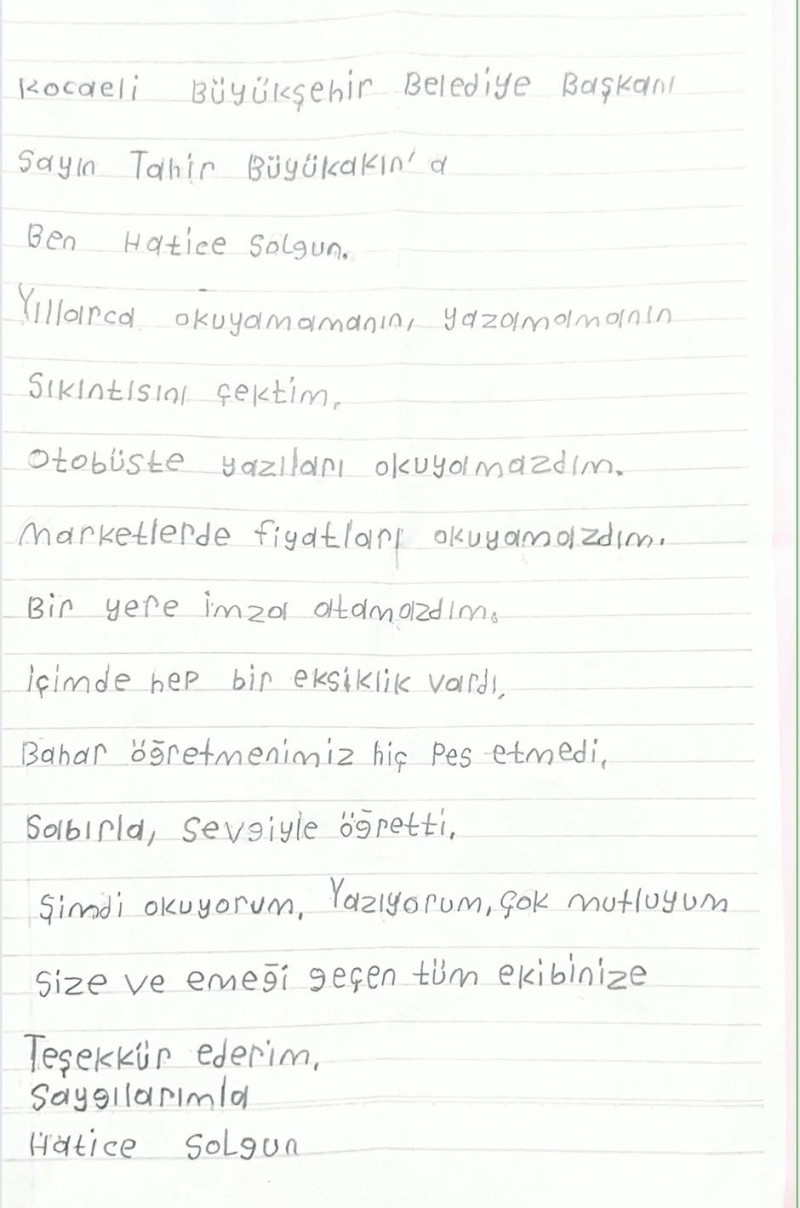 Kocaeli Büyükşehir Belediye Başkanı
Sayın Tahir Büyükakın'a
Ben Hatice Solgun.
Yıllarca okuyamamanın, yazamamanın
Sıkıntısını çektim,
Otobüste yazıları okuyamazdım.
Marketlerde fiyatları okuyamazdım.
Bir yere imza atamazdım.
İçimde hep bir eksiklik vardı,
Bahar öğretmenimiz hiç pes etmedi,
Sabırla, sevgiyle öğretti,
Şimdi okuyorum, Yazıyorum, çok mutluyum
Size ve emeği geçen tüm ekibinize
Teşekkür ederim,
Saygılarımla
Hatice Solgun